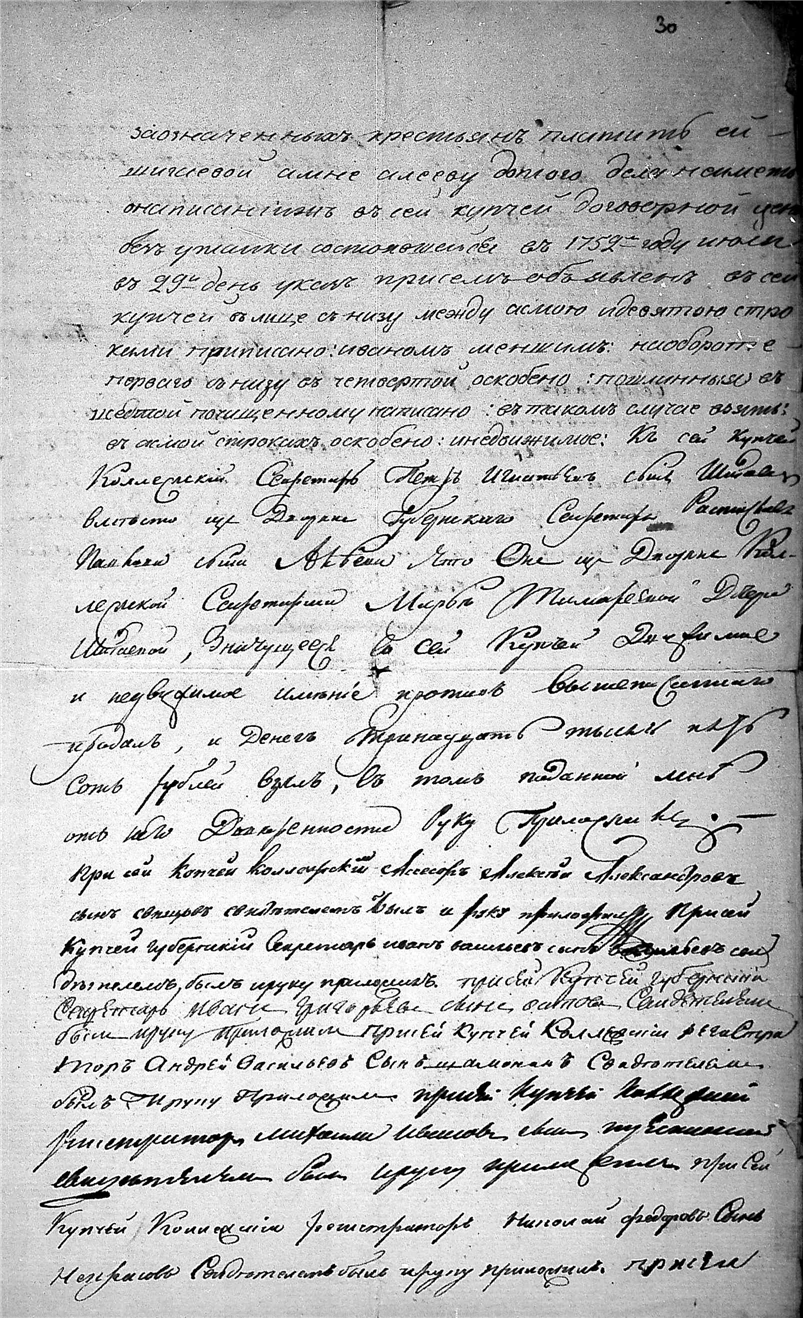 30
заозначенныхъ крестьянъ платить ей
шигаевой амне алееву дотого дела неиметь
онаписаннизъ въ сей купчей договорной цен
безъ утайки состоявшейся въ 1752м году июля
въ 29й день указъ присемъ объявленъ въ сей
купчей въ лице съ низу между осмою идевятою стро
ками приписано: иваномъ меншимъ: наоборотъ е
перваго съ низу въ четвертой оскобено: пошлинныя въ
шестой почищенному написано: въ такомъ случае взять:
въ осмой строкахъ оскобено: инедвижимое: Къ сей купчей
Коллежскій Секретарь Петръ Игнатьевъ сынъ
вместо Губернскаго Секретаря
сына что Онъ
лежской Секретарши Марье Тимофеевой Дочери
Шигаевой, Значущееся въ сей Купчей Движимое
и недвижимое имѣніе противъ вышеписаннаго
продалъ, и Денегъ тринадцать тысячь пять
сотъ рублей взялъ, въ томъ поданной мнѣ
отъ него Доверенности Руку Приложилъ.
При сей Купчей Коллежскій Асесоръ Алексей Александровъ
сынъ свидѣтелемъ былъ и руку приложилъ При сей
Купчей губернскій Секретарь иванъ васильевъ сынъ сви
дѣтелемъ былъ ируку приложилъ. при сей Купчей Губернский
Секретарь Иванъ григорьевъ сынъ Свидетелемъ
былъ ируку приложилъ При сей Купчей Коллежский регистра
торъ Андрей Васильевъ Сынъ Свидѣтелемъ
былъ Ируку Приложилъ при сей Купчей Коллежский
регистраторъ михайла Ивановъ сынъ
свидѣтелемъ былъ ируку приложилъ при Сей
Купчей Коллежский регистраторъ Николай федоровъ Сынъ
Некрасовъ Свидѣтелемъ былъ ируку приложилъ. при сей